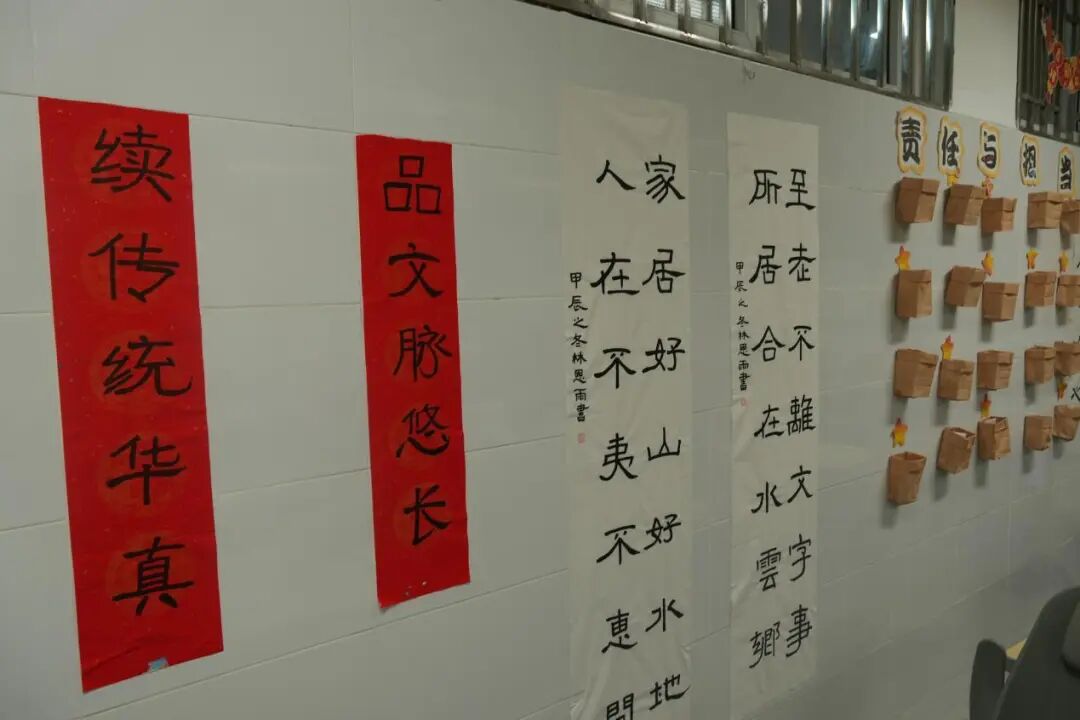 续传统华真
品文脉悠长
家居好山好水地
人在不夷不惠間
甲辰之冬林恩雨書
至老不離文字事
所居合在水雲鄉
甲辰之冬林恩雨書
责任与担当